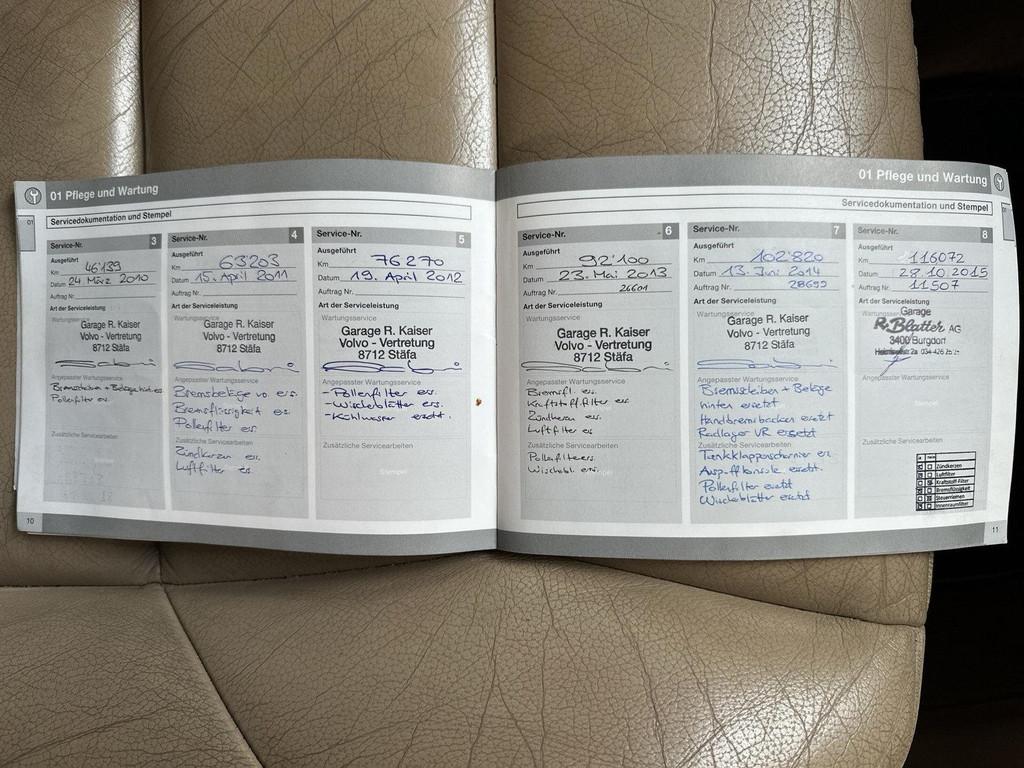 01 Pflege und Wartung
01
Servicedokumentation und Stempel
Service-Nr. 3
Ausgeführt
Km 46'139
Datum 24 März 2010
Auftrag Nr.
Art der Serviceleistung
Wartungsservice
Garage R. Kaiser
Volvo - Vertretung
8712 Stäfa
Angepasster Wartungsservice
Bremsscheiben + Beläge hint. ers.
Pollenfilter ers.
Zusätzliche Servicearbeiten
Service-Nr. 4
Ausgeführt
Km 63203
Datum 15. April 2011
Auftrag Nr.
Art der Serviceleistung
Wartungsservice
Garage R. Kaiser
Volvo - Vertretung
8712 Stäfa
Angepasster Wartungsservice
Bremsbeläge vo. ers.
Bremsflüssigkeit ers.
Pollenfilter ers.
Zusätzliche Servicearbeiten
Zündkerzen ers.
Luftfilter ers.
Service-Nr. 5
Ausgeführt
Km 76270
Datum 19. April 2012
Auftrag Nr.
Art der Serviceleistung
Wartungsservice
Garage R. Kaiser
Volvo - Vertretung
8712 Stäfa
Angepasster Wartungsservice
- Pollenfilter ers.
- Wischeblätter ers.
- Kühlwasser ersetzt.
Zusätzliche Servicearbeiten
Stempel
10
01 Pflege und Wartung
Servicedokumentation und Stempel
Service-Nr. 6
Ausgeführt
Km 92'100
Datum 23. Mai 2013
Auftrag Nr. 26601
Art der Serviceleistung
Wartungsservice
Garage R. Kaiser
Volvo - Vertretung
8712 Stäfa
Angepasster Wartungsservice
Bremsfl. ers.
Kraftstofffilter ers.
Zündkerzen ers.
Luftfilter ers.
Zusätzliche Servicearbeiten
Pollenfilter ers.
Wischebl. ers.
Service-Nr. 7
Ausgeführt
Km 102'820
Datum 13. Juni 2014
Auftrag Nr. 28699
Art der Serviceleistung
Wartungsservice
Garage R. Kaiser
Volvo - Vertretung
8712 Stäfa
Angepasster Wartungsservice
Bremsscheiben + Beläge
hinten ersetzt
Handbremsbacken ersetzt
Radlager VR ersetzt
Zusätzliche Servicearbeiten
Tankklappenscharnier ers.
Auspuffkonsole ersetzt.
Pollenfilter ersetzt
Wischeblätter ersetzt
Service-Nr. 8
Ausgeführt
Km 116072
Datum 28.10.2015
Auftrag Nr. 11507
Art der Serviceleistung
Wartungsservice
Garage
R. Blatter AG
3400 Burgdorf
Angepasster Wartungsservice
Zusätzliche Servicearbeiten
Zündkerzen
Luftfilter
Kraftstoff-Filter
Bremsflüssigkeit
Steuerriemen
Innenraumfilter
11